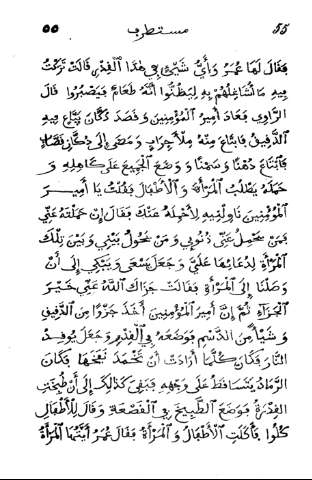 55 مستطرف ٥٥
فقال لها عمر وأي شيئ في هذا القدر قالت تركت
فيه ما أشاغلهم به ليظنوا أنه طعام فيصبروا قال
الراوي فعاد أمير المؤمنين وقصد دكان بياع فيه
الدقيق فابتاع منه ملأ جراب ومضى إلى دكان
فابتاع دهنا وسمنا ووضع الجميع على كاهله و
حمله يطلب المرأة والأطفال فقلت يا أميــر
المؤمنين ناولنيه لأحمله عنك فقال إن حملته عني
فمن يحمل عني ذنوبي ومن يحول بيني وبين تلك
المرأة لدعائها علي وجعل يسعى ويبكي إلى أن
وصلنا إلى المرأة فقالت جزاك الله عني خيــر
الجزاء ثم إن أمير المؤمنين أخذ جزءا من الدقيق
وشيأ من الدسم فوضعه في القدر وجعل يوقد
النار فكان كلما أرادت أن تخمد نفخها فكان
الرماد يتساقط على وجهه فبقي كذلك إلى أن طبخت
القدرة فوضع الطبيخ في القصعة وقال للأطفال
كلوا فأكلت الأطفال والمرأة فقال عمر أيتها المرأة